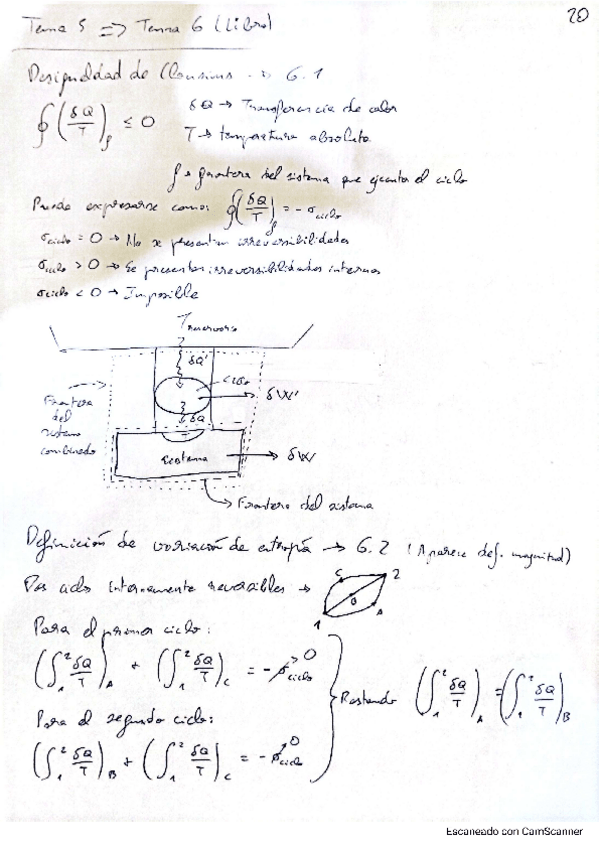 20
Tema 5 => Tema 6 (Libro)
Desigualdad de Clausius -> 6.1
∮(δQ/T)_f ≤ 0   δQ -> Transferencia de calor
T -> temperatura absoluta
f -> frontera del sistema que ejecuta el ciclo
Puede expresarse como: ∮(δQ/T)_f = -σciclo
σciclo = 0 -> No se presentan irreversibilidades
σciclo > 0 -> Se presentan irreversibilidades internas
σciclo < 0 -> Imposible
Treservorio
δQ'
ciclo
δW'
δQ
Frontera
del
sistema
combinado
Sistema
δW
Frontera del sistema
Definición de variación de entropía -> 6.2 (Aparece def. magnitud)
Dos ciclos internamente reversibles ->
C 2
B
1 A
Para el primer ciclo:
(∫₁² δQ/T)_A + (∫₁² δQ/T)_C = -σciclo 0
Restando (∫₁² δQ/T)_A = (∫₁² δQ/T)_B
Para el segundo ciclo:
(∫₁² δQ/T)_B + (∫₁² δQ/T)_C = -σciclo 0
Escaneado con CamScanner